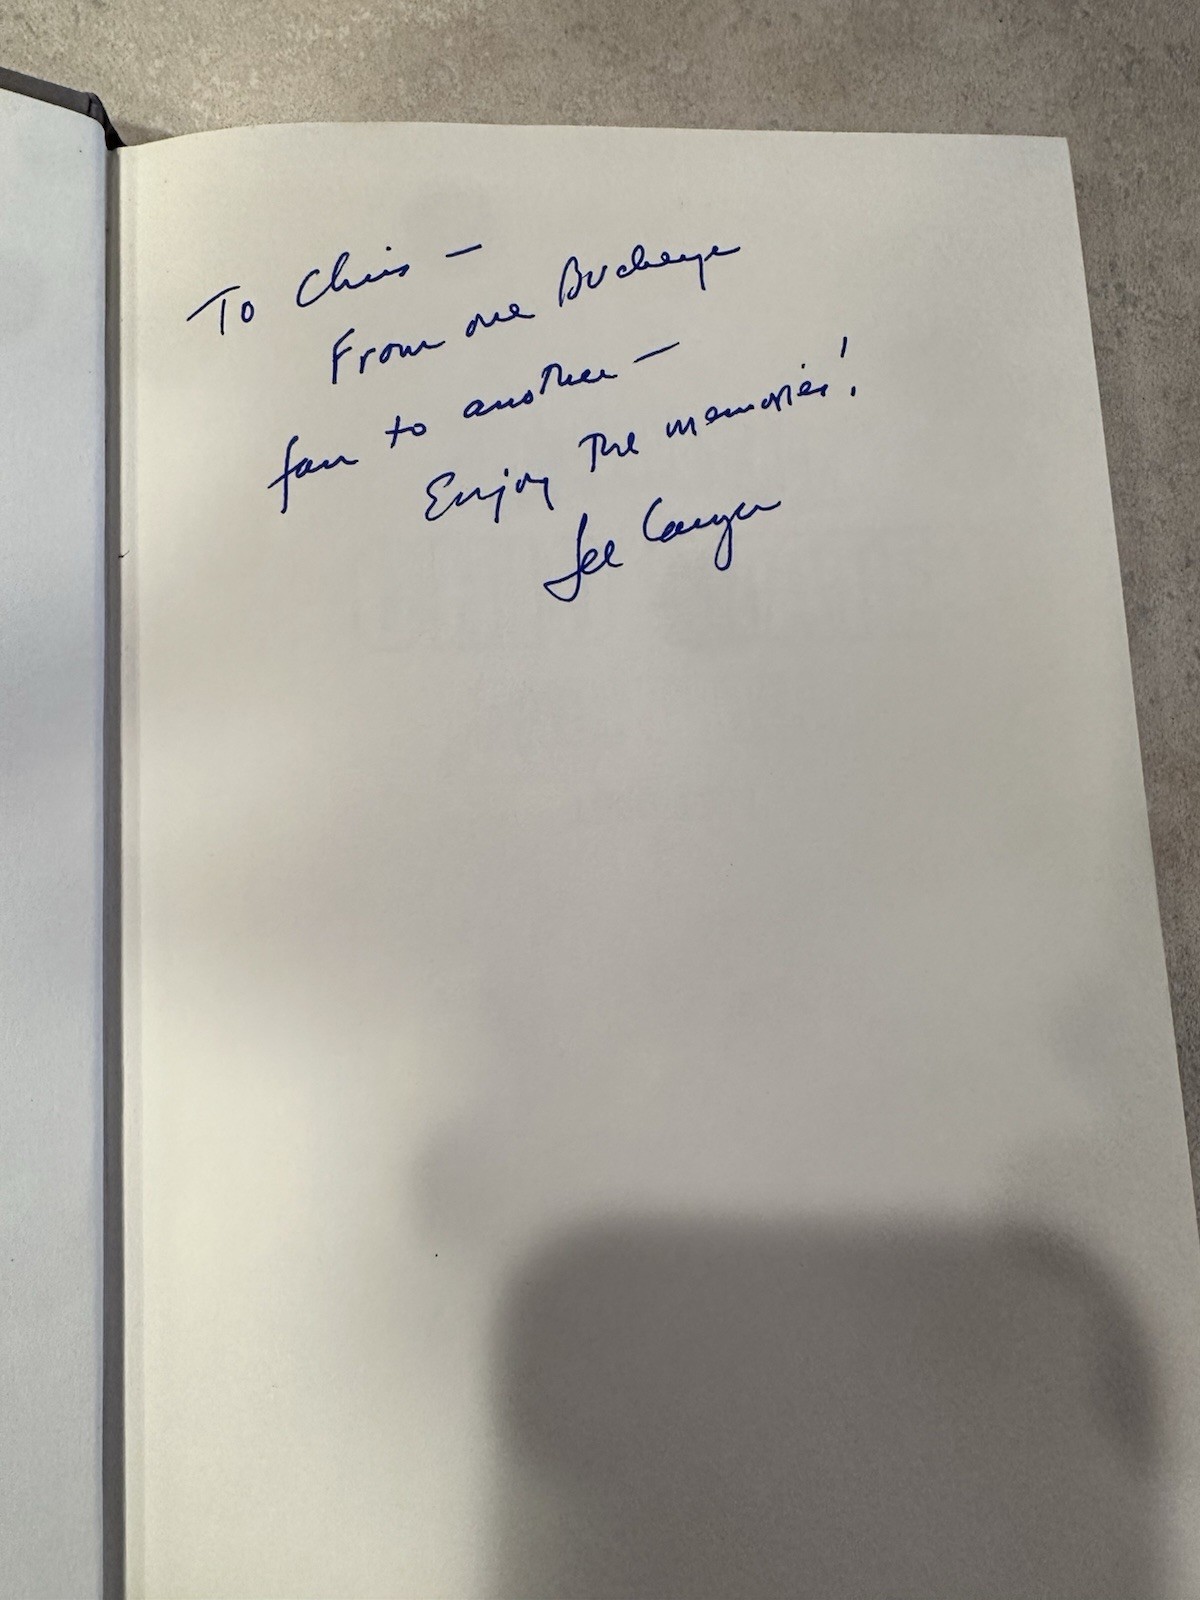 To Chris —
From one Buckeye
fan to another —
Enjoy The memories!
Lee Caryer